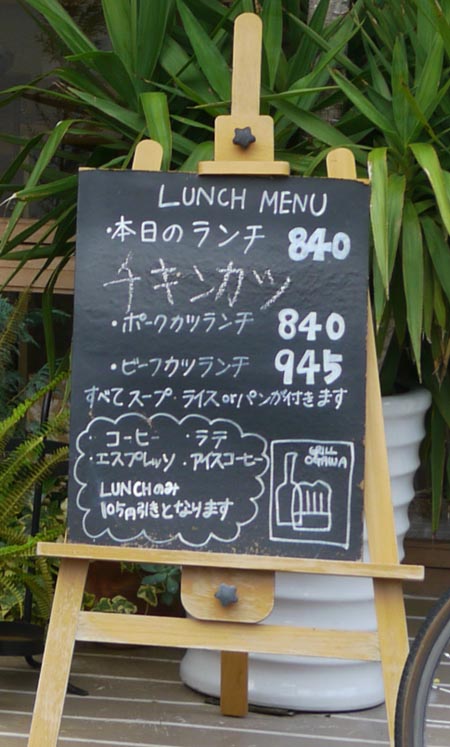 LUNCH MENU
・本日のランチ 840
チキンカツ
・ポークカツランチ 840
・ビーフカツランチ 945
すべてスープ・ライスorパンが付きます
・コーヒー ・ラテ
・エスプレッソ ・アイスコーヒー
LUNCHのみ
105円引きとなります
GRILL
OGAWA